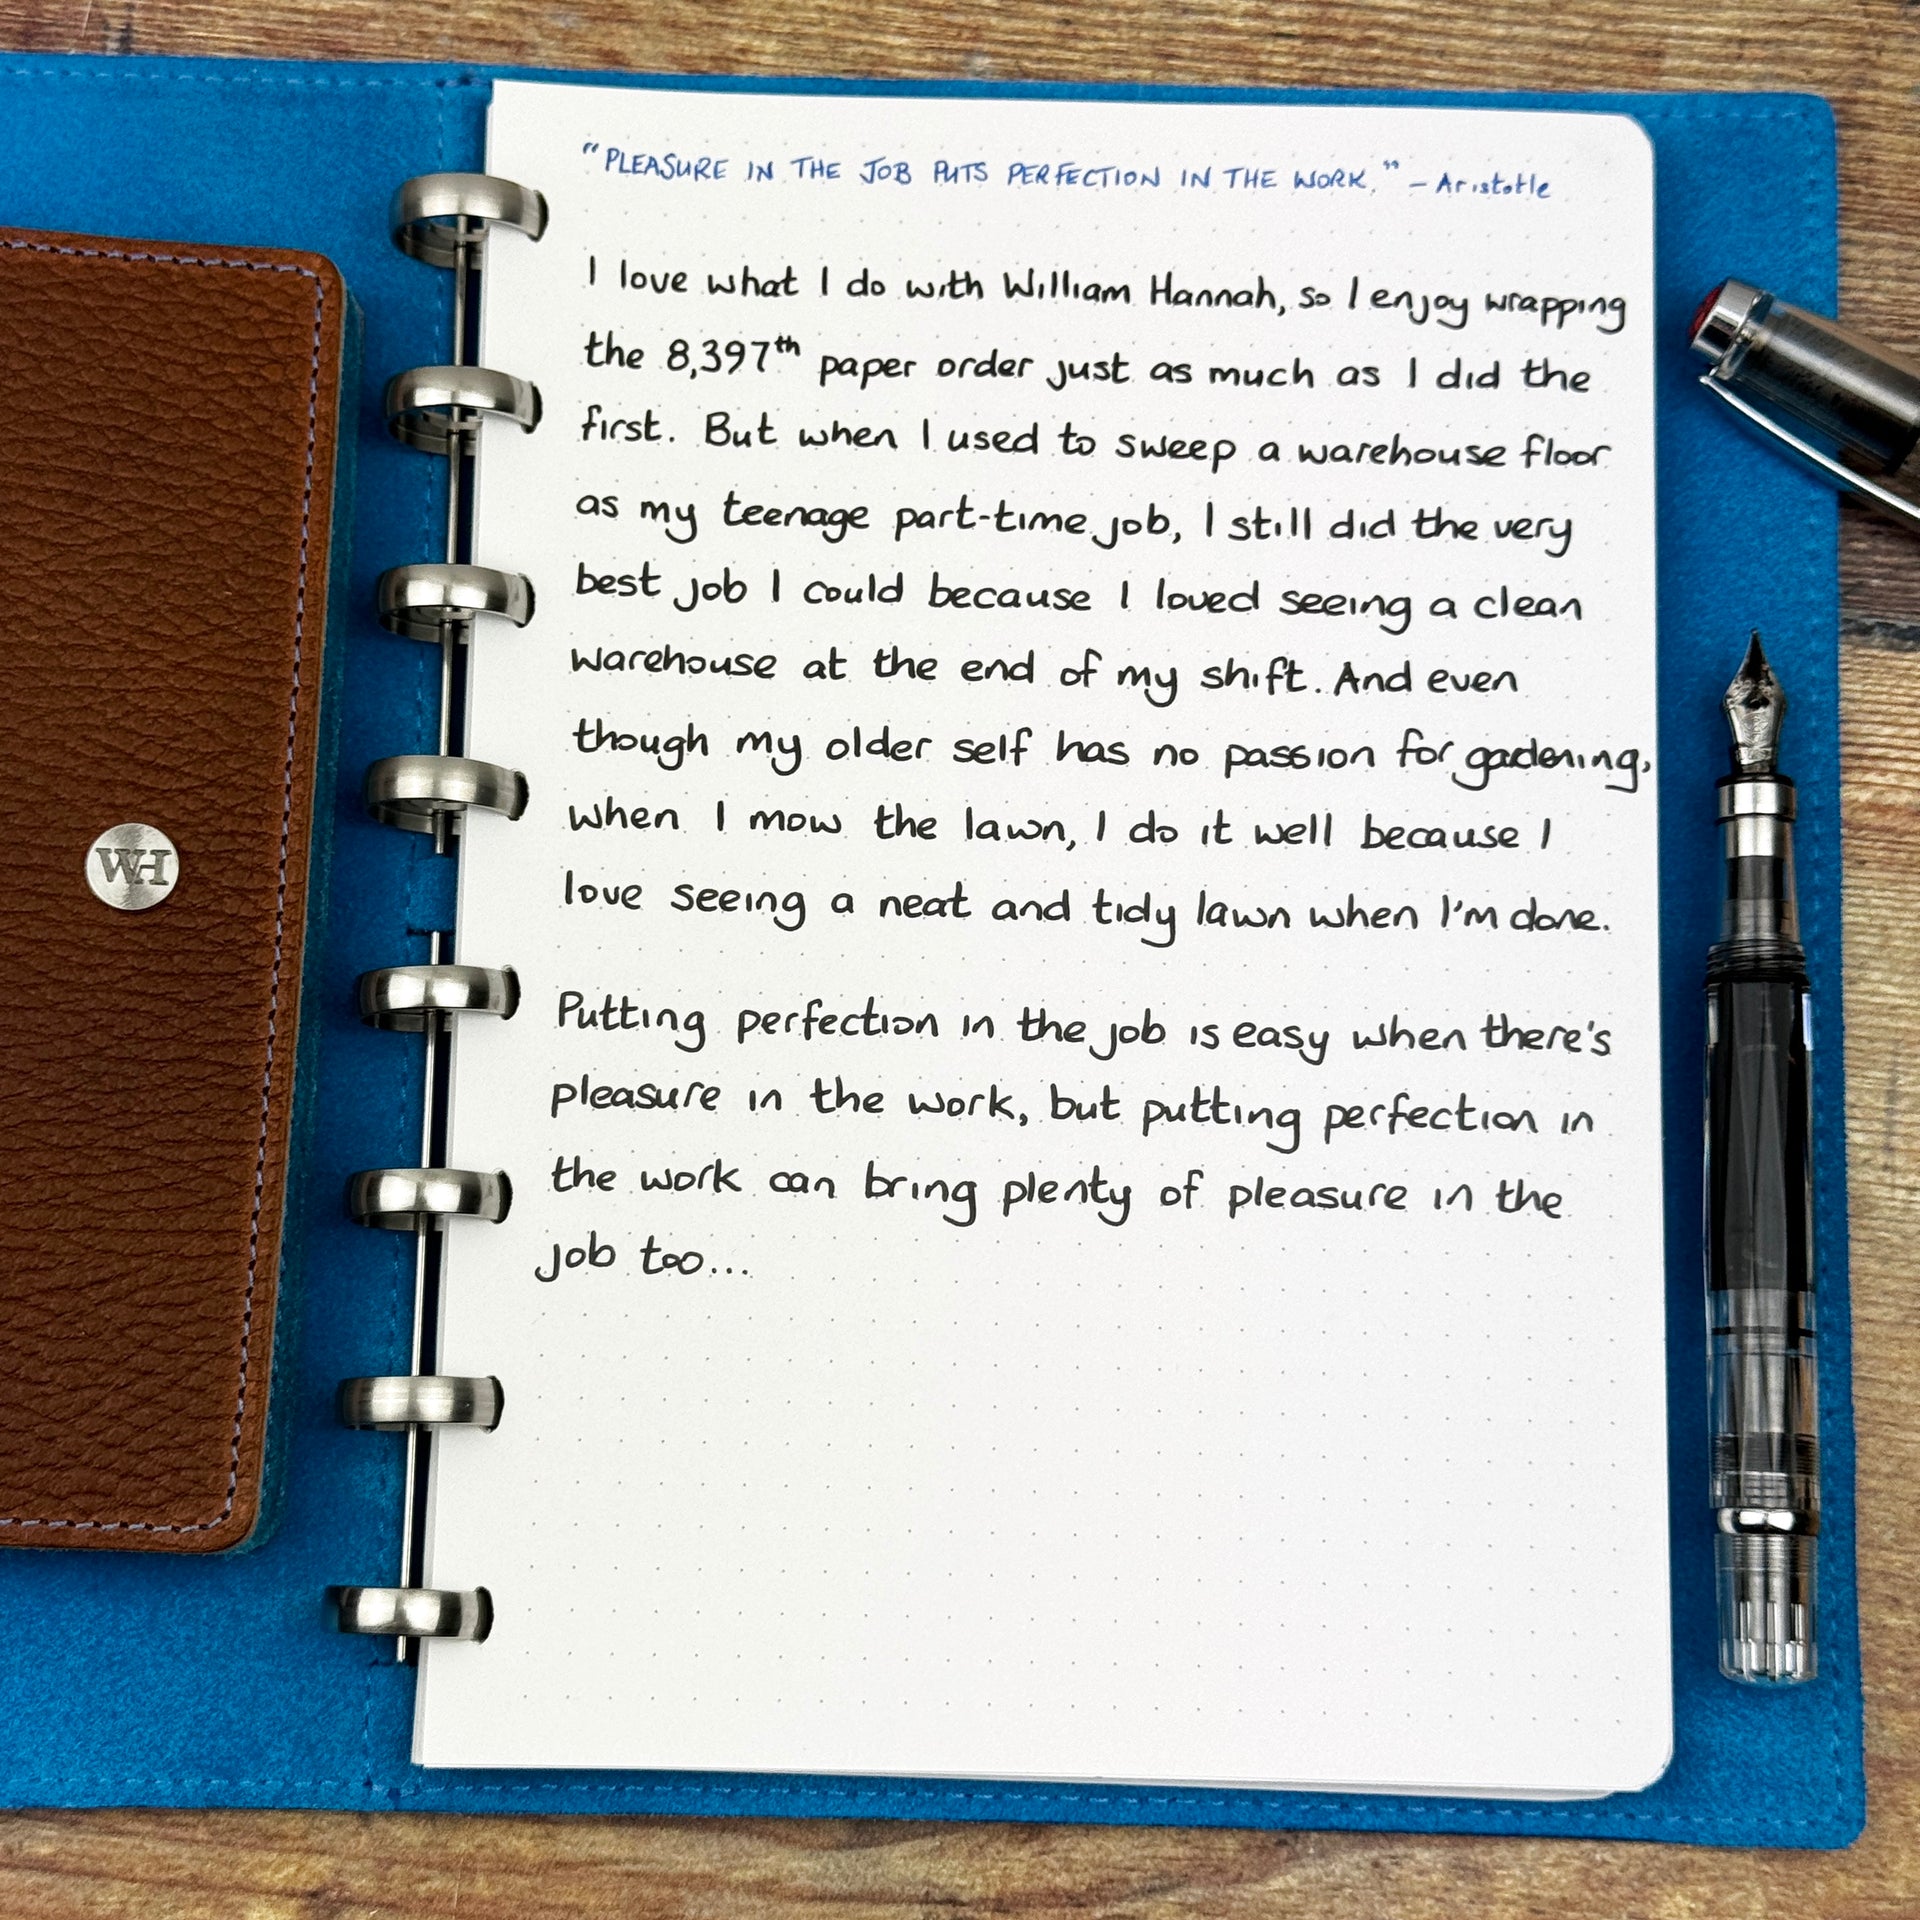 "PLEASURE IN THE JOB PUTS PERFECTION IN THE WORK." – Aristotle
I love what I do with William Hannah, so I enjoy wrapping
the 8,397th paper order just as much as I did the
first. But when I used to sweep a warehouse floor
as my teenage part-time job, I still did the very
best job I could because I loved seeing a clean
warehouse at the end of my shift. And even
though my older self has no passion for gardening,
when I mow the lawn, I do it well because I
love seeing a neat and tidy lawn when I'm done.
Putting perfection in the job is easy when there's
pleasure in the work, but putting perfection in
the work can bring plenty of pleasure in the
job too...
WH